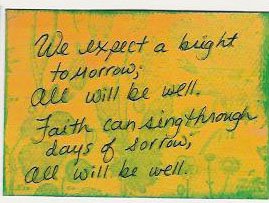 We expect a bright
tomorrow;
All will be well.
Faith can sing through
days of sorrow,
All will be well.